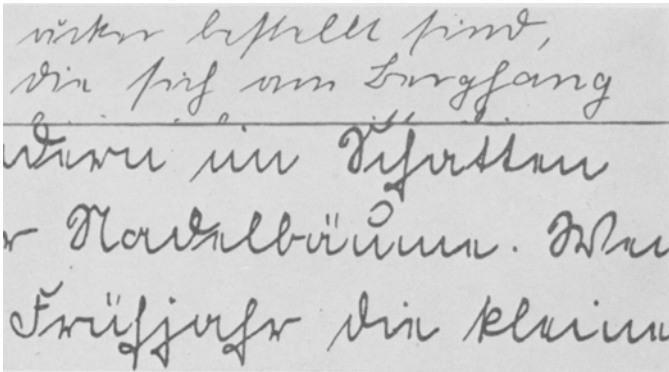 äcker bestellt sind,
die sich am Berghang
dern im Schatten
r Nadelbäume. Wen
Frühjahr die kleine